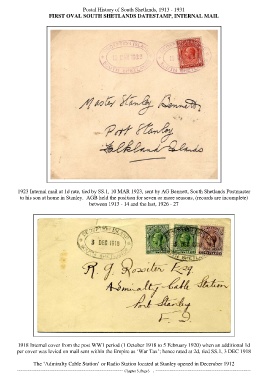 Postal History of South Shetlands, 1913 - 1931
FIRST OVAL SOUTH SHETLANDS DATESTAMP, INTERNAL MAIL
Master Stanley Bennett
Port Stanley
Falkland Islands
1923 Internal mail at 1d rate, tied by SS.1, 10 MAR 1923, sent by AG Bennett, South Shetlands Postmaster
to his son at home in Stanley. AGB held the position for seven or more seasons, (records are incomplete)
between 1913 - 14 and the last, 1926 - 27
3 DEC 1918
3 DEC 1918
R. J. Rossiter Esq.
Admiralty Cable Station
Port Stanley
F. I.
1918 Internal cover from the post WW1 period (1 October 1918 to 5 February 1920) when an additional ½d
per cover was levied on mail sent within the Empire as 'War Tax'; hence rated at 2d, tied SS.1, 3 DEC 1918
The 'Admiralty Cable Station' or Radio Station located at Stanley opened in December 1912